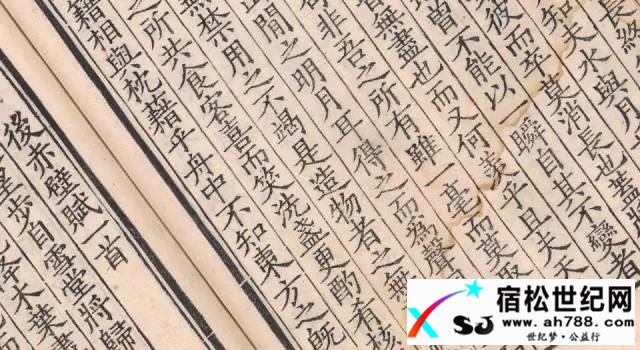 長終
知夫水與月
彼而卒莫消長也蓋
曾不能以一瞬自其不變者
無盡也而又何羨乎且夫天
非吾之所有雖一毫而莫取
間之明月耳得之而為聲
無禁用之不竭是造物者之無
之所共食客喜而笑洗盞更酌肴核
藉相與枕藉乎舟中不知東方之既
後赤壁賦一首
步自雪堂將歸
木葉
宿松世纪网
XSJ
www.ah788.com
世纪梦·公益行